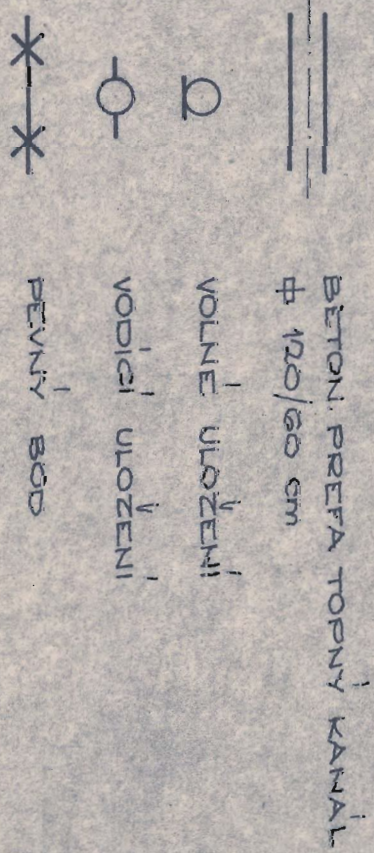 BETON. PREFA TOPNÝ KANÁL
⌀ 120/60 cm
VOLNÉ ULOŽENÍ
VODÍCÍ ULOŽENÍ
PEVNÝ BOD